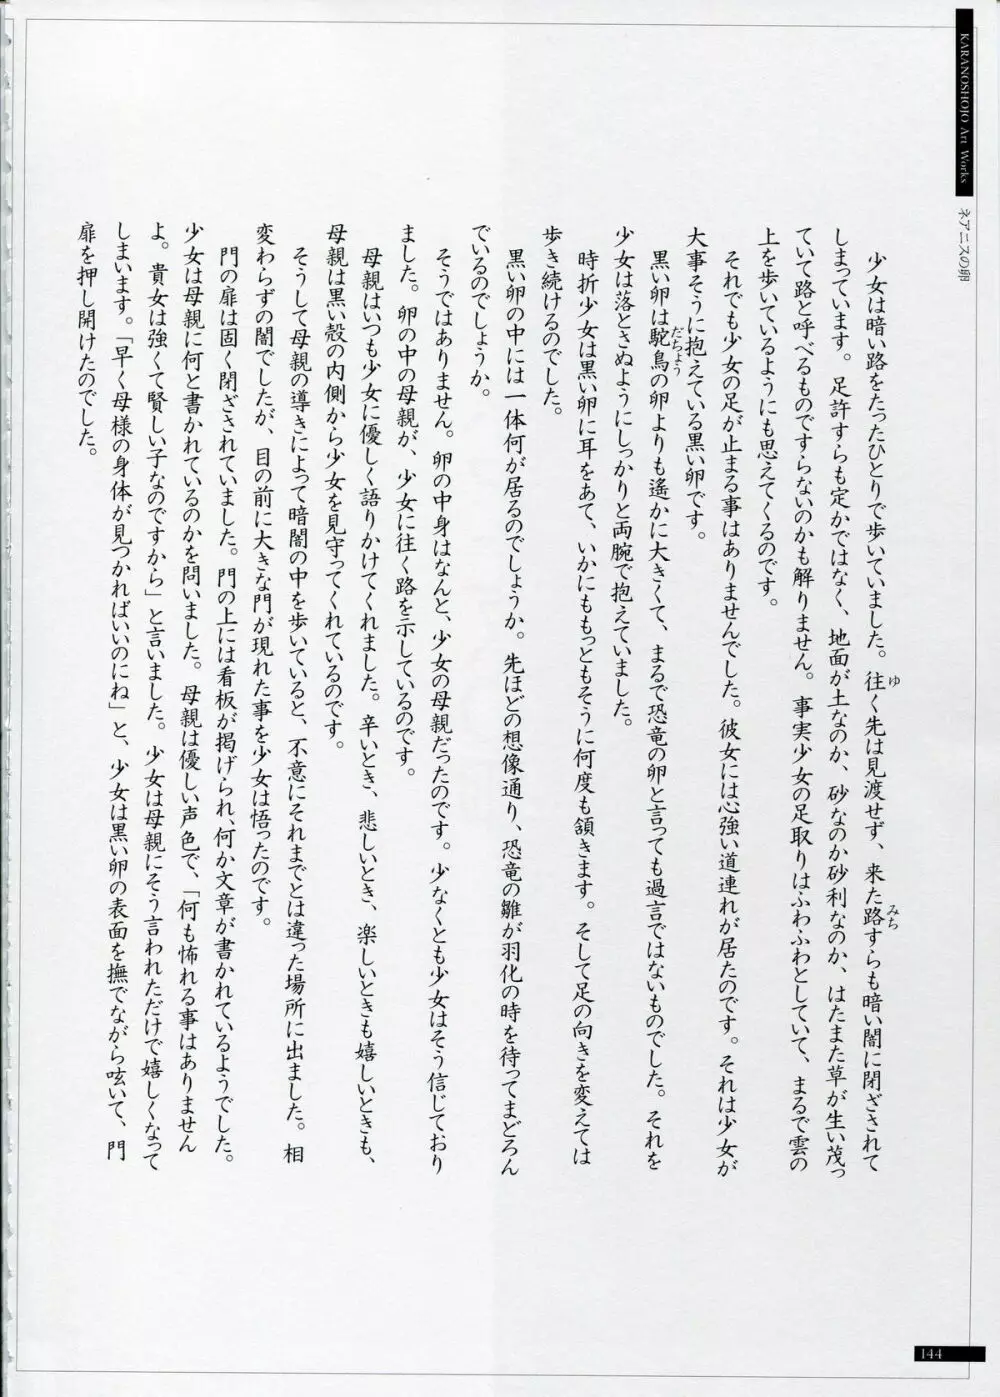 KARANOSHOJO Art Works
ネアニスの卵
少女は暗い路をたったひとりで歩いていました。往く先は見渡せず、来た路すらも暗い闇に閉ざされて
しまっています。足許すらも定かではなく、地面が土なのか、砂なのか砂利なのか、はたまた草が生い茂っ
ていて路と呼べるものですらないのかも解りません。事実少女の足取りはふわふわとしていて、まるで雲の
上を歩いているようにも思えてくるのです。
それでも少女の足が止まる事はありませんでした。彼女には心強い道連れが居たのです。それは少女が
大事そうに抱えている黒い卵です。
黒い卵は駝鳥の卵よりも遙かに大きくて、まるで恐竜の卵と言っても過言ではないものでした。それを
少女は落とさぬようにしっかりと両腕で抱えていました。
時折少女は黒い卵に耳をあて、いかにももっともそうに何度も頷きます。そして足の向きを変えては
歩き続けるのでした。
黒い卵の中には一体何が居るのでしょうか。先ほどの想像通り、恐竜の雛が羽化の時を待ってまどろん
でいるのでしょうか。
そうではありません。卵の中身はなんと、少女の母親だったのです。少なくとも少女はそう信じており
ました。卵の中の母親が、少女に往く路を示しているのです。
母親はいつも少女に優しく語りかけてくれました。辛いとき、悲しいとき、楽しいときも嬉しいときも、
母親は黒い殻の内側から少女を見守ってくれているのです。
そうして母親の導きによって暗闇の中を歩いていると、不意にそれまでとは違った場所に出ました。相
変わらずの闇でしたが、目の前に大きな門が現れた事を少女は悟ったのです。
門の扉は固く閉ざされていました。門の上には看板が掲げられ、何か文章が書かれているようでした。
少女は母親に何と書かれているのかを問いました。母親は優しい声色で、「何も怖れる事はありません
よ。貴女は強くて賢しい子なのですから」と言いました。少女は母親にそう言われただけで嬉しくなって
しまいます。「早く母様の身体が見つかればいいのにね」と、少女は黒い卵の表面を撫でながら呟いて、門
扉を押し開けたのでした。
144